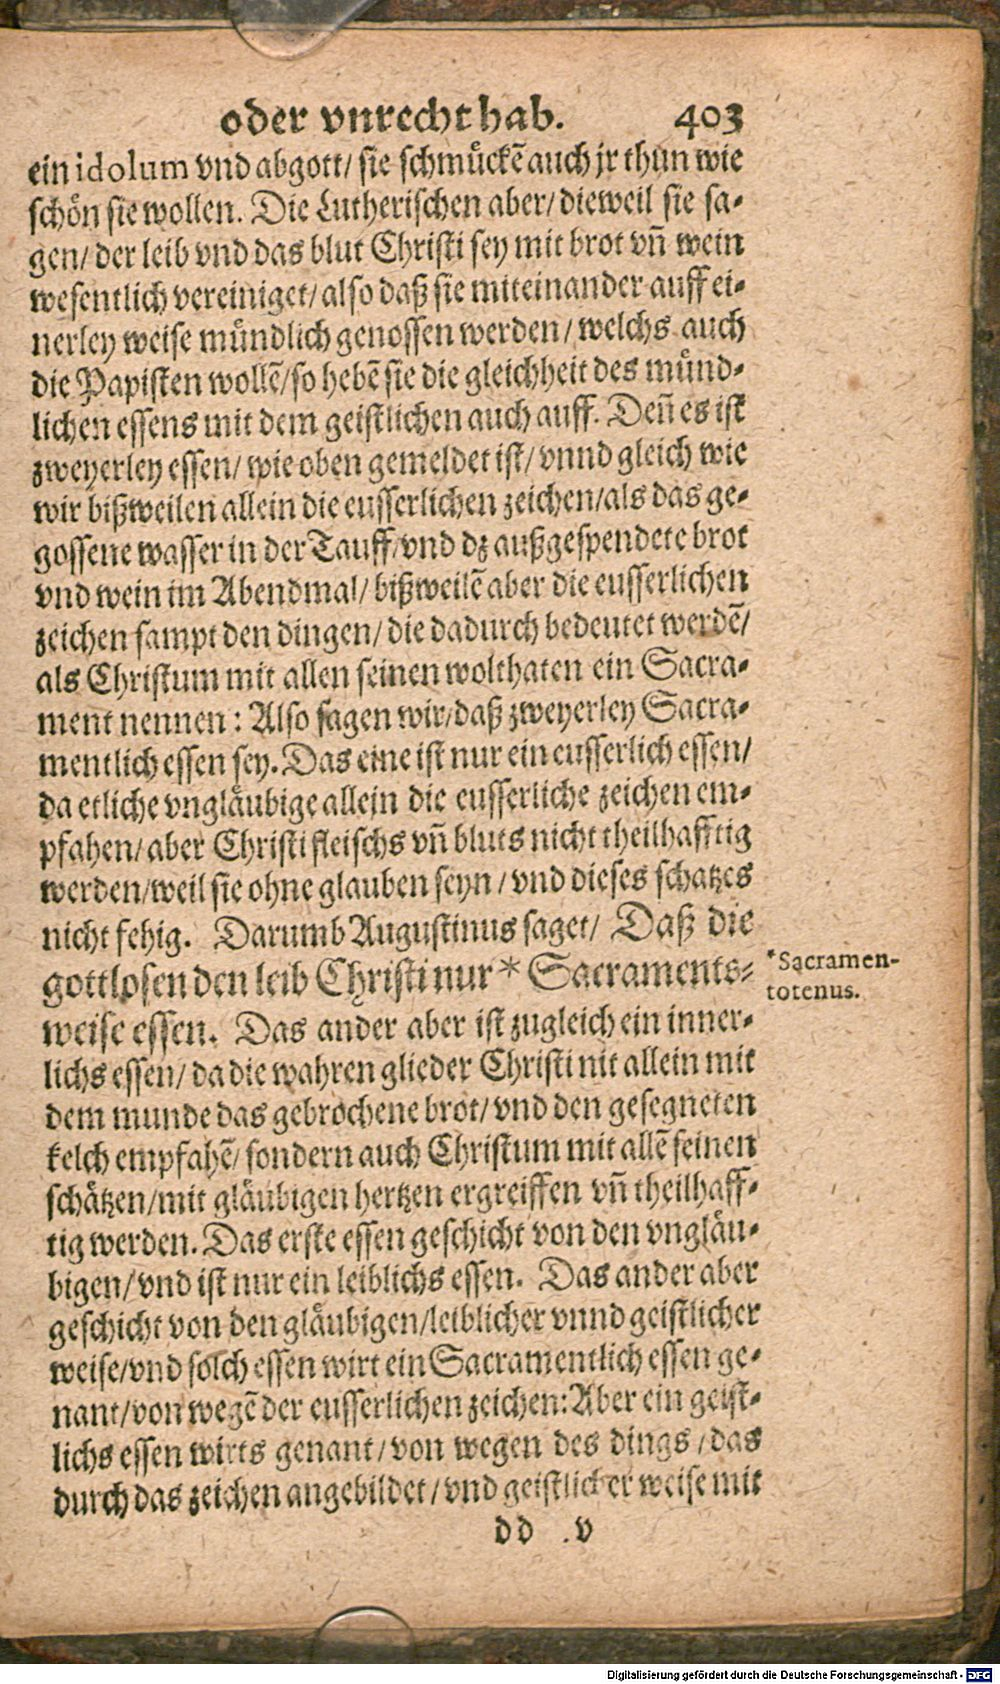 oder vnrecht hab. 403
ein idolum vnd abgott/ sie schmückē auch jr thun wie
schön sie wollen. Die Lutherischen aber/ dieweil sie sa-
gen/ der leib vnd das blut Christi sey mit brot vñ wein
wesentlich vereiniget/ also daß sie miteinander auff ei-
nerley weise mündlich genossen werden/ welchs auch
die Papisten wollē/ so hebē sie die gleichheit des münd-
lichen essens mit dem geistlichen auch auff. Deñ es ist
zweyerley essen/ wie oben gemeldet ist/ vnnd gleich wie
wir bißweilen allein die eusserlichen zeichen/ als das ge-
gossene wasser in der Tauff/ vnd dz außgespendete brot
vnd wein im Abendmal/ bißweilē aber die eusserlichen
zeichen sampt den dingen/ die dadurch bedeutet werdē/
als Christum mit allen seinen wolthaten ein Sacra-
ment nennen: Also sagen wir/ daß zweyerley Sacra-
mentlich essen sey. Das eine ist nur ein eusserlich essen/
da etliche vngläubige allein die eusserliche zeichen em-
pfahen/ aber Christi fleischs vñ bluts nicht theilhafftig
werden/ weil sie ohne glauben seyn/ vnd dieses schatzes
nicht fehig. Darumb Augustinus saget/ Daß die
gottlosen den leib Christi nur * Sacraments-
weise essen. Das ander aber ist zugleich ein inner-
lichs essen/ da die wahren glieder Christi nit allein mit
dem munde das gebrochene brot/ vnd den gesegneten
kelch empfahē/ sondern auch Christum mit allē seinen
schätzen/ mit gläubigen hertzen ergreiffen vñ theilhaff-
tig werden. Das erste essen geschicht von den vngläu-
bigen/ vnd ist nur ein leiblichs essen. Das ander aber
geschicht von den gläubigen/ leiblicher vnnd geistlicher
weise/ vnd solch essen wirt ein Sacramentlich essen ge-
nant/ von wegē der eusserlichen zeichen: Aber ein geist-
lichs essen wirts genant/ von wegen des dings/ das
durch das zeichen angebildet/ vnd geistlicher weise mit
dd v
*Sacramen-
totenus.
Digitalisierung gefördert durch die Deutsche Forschungsgemeinschaft - DFG